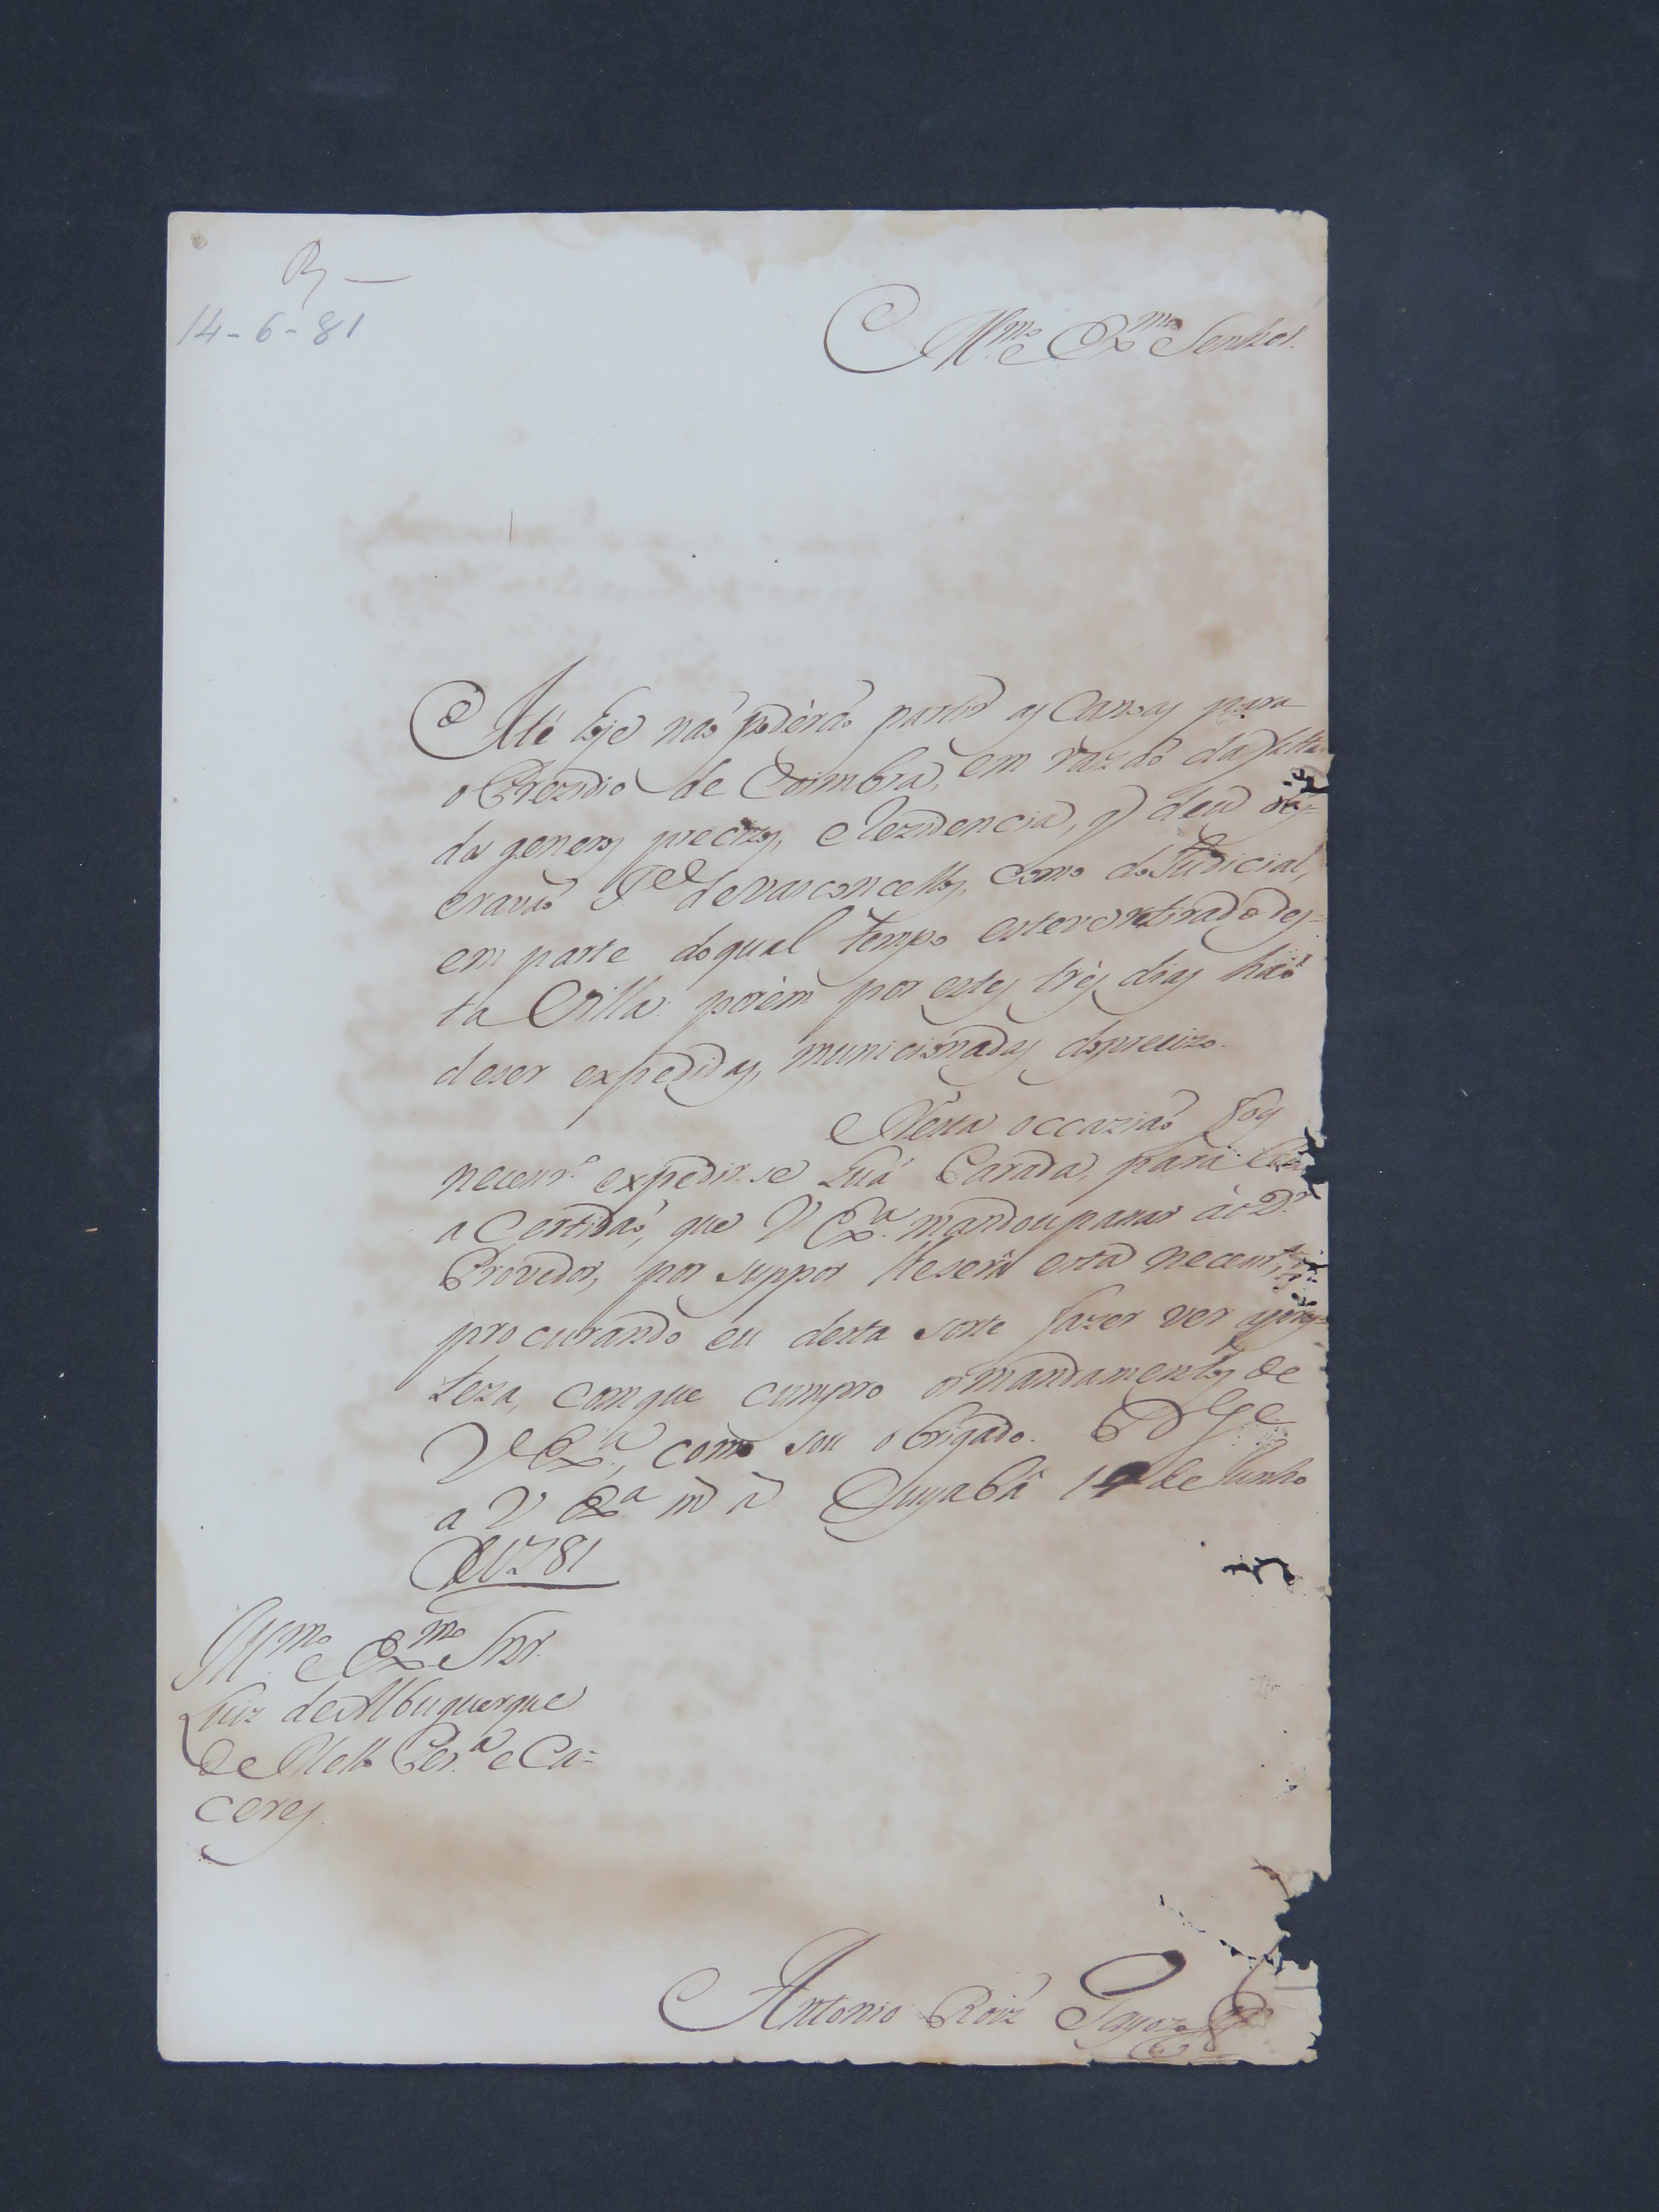 R —
14-6-81
Ill.mo e Ex.mo Senhor.
Até hoje não podérão partir as Canoas para
o Prezidio de Coimbra, em razão da falta
dos generos precizos, e rezidencia, q deu o
de Vasconcellos, como do Judicial,
em parte do qual tempo esteve retirado des=
ta Villa: porèm por estes três dias hão
deser expedidas, municionadas do precizo.
Nesta occazião foy
necessr.o expedir-se huá Parada, para
a Certidão, que V Ex.a mandou passar ao D.r
Provedor, por suppor lheserà esta necessr.a,
procurando eu desta sorte fazer ver apres=
teza, comque cumpro os mandamentos de
V Ex.a, como sou obrigado. D G.e
a V Ex.a m a Cuyabâ 14 de Junho
de 1781
Ill.mo e Ex.mo Snr.
Luiz de Albuquerque
de Mello Per.a e Ca=
ceres
Antonio Roiz Gayozo